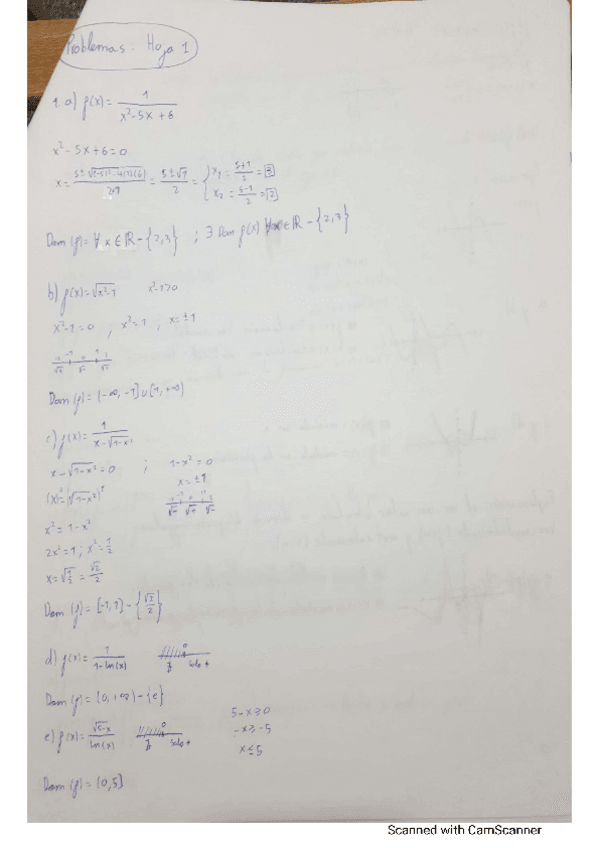 Problemas: Hoja 1
1. a) f(x) = 1 / (x² - 5x + 6)
x² - 5x + 6 = 0
x = (5 ± √((-5)² - 4(1)(6))) / 2·1 = (5 ± √1) / 2 = { x₁ = (5+1)/2 = 3
x₂ = (5-1)/2 = 2
Dom (f) = ∀ x ∈ ℝ - {2,3} ; ∃ Dom f(x) ∀x ∈ ℝ - {2,3}
b) f(x) = √(x²-1)
x²-1 = 0 , x² = 1 ; x = ±1
Dom (f) = (-∞, -1] ∪ [1, +∞)
c) f(x) = 1 / (x - √(1-x²))
x - √(1-x²) = 0 ; 1-x² = 0
(x)² = (√(1-x²))² x = ±1
x² = 1 - x²
2x² = 1 ; x² = 1/2
x = √(1/2) = √2/2
Dom (f) = [-1, 1] - {√2/2}
d) f(x) = 1 / (1 - ln(x)) 0 ∄ solo +
Dom (f) = (0, +∞) - {e}
5 - x ≥ 0
e) f(x) = √(5-x) / ln(x) 0 ∄ solo + -x ≥ -5
x ≤ 5
Dom (f) = (0, 5]
Scanned with CamScanner